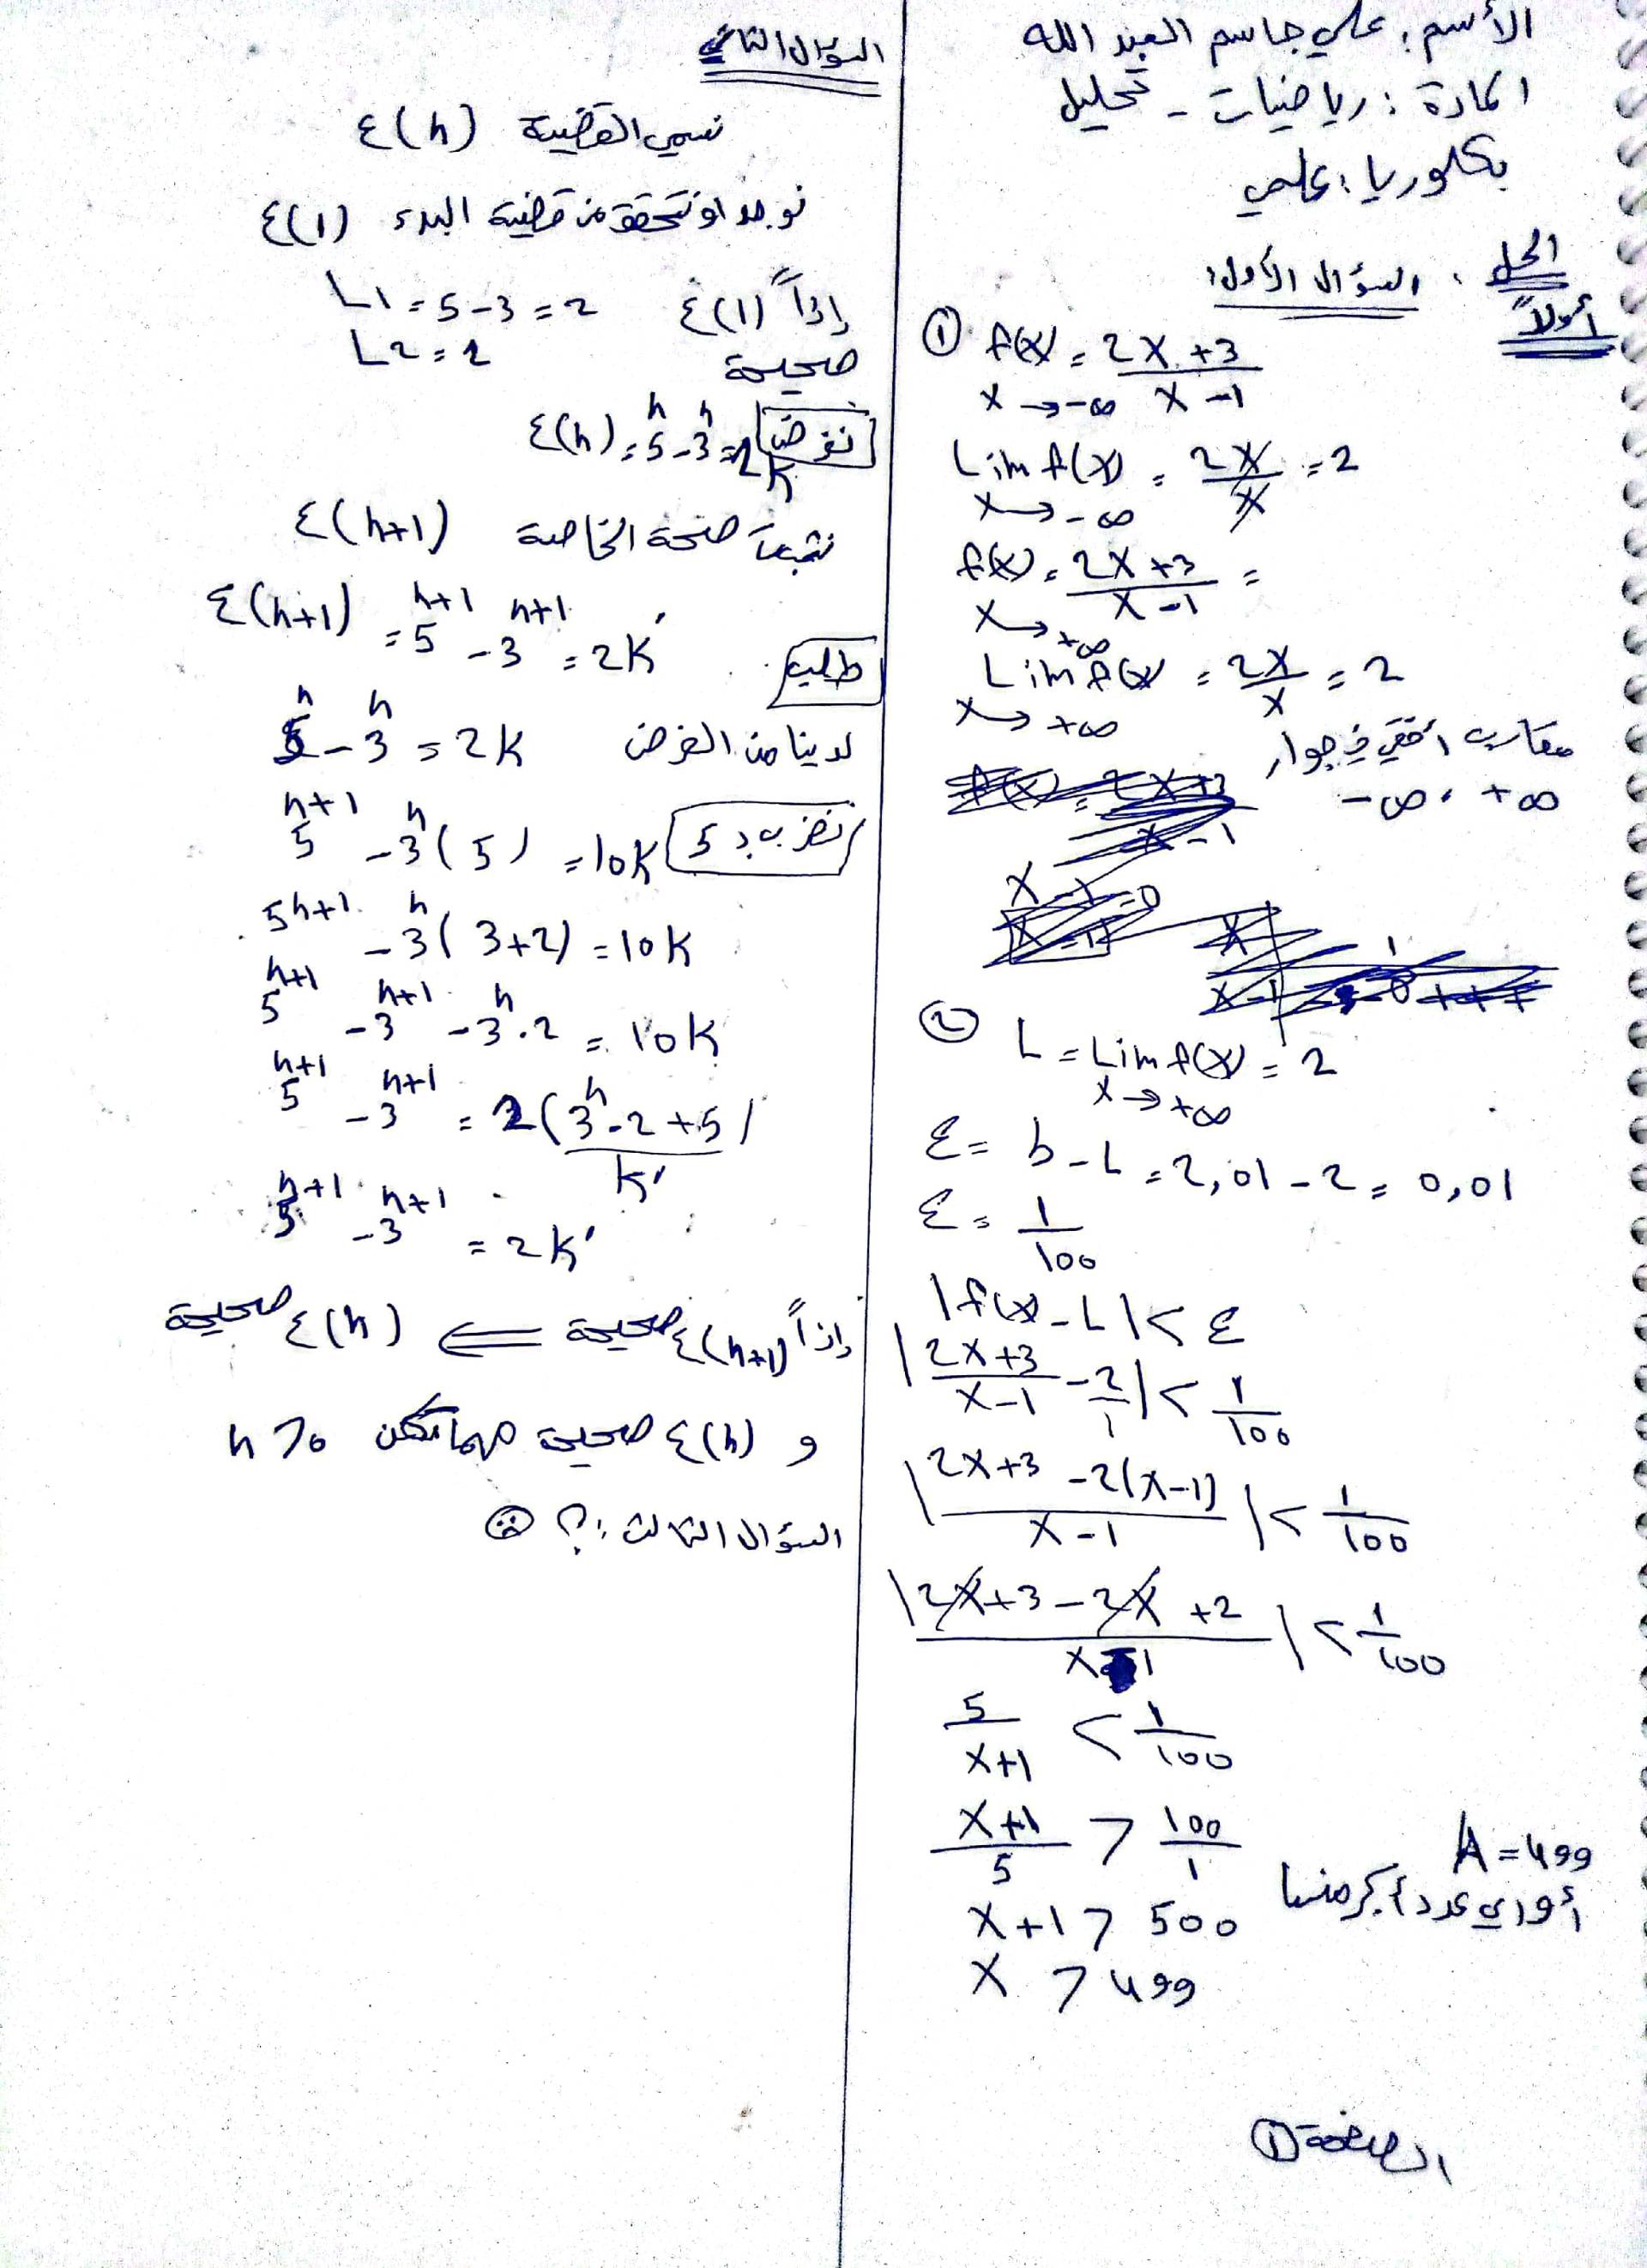 الأسم: علي جاسم العبد الله
المادة: رياضيات - تحليل
بكلوريا: علمي
الحل: السؤال الأول:
أولاً
① f(x) = (2x+3)/(x-1)
x → -∞
Lim f(x) = 2x/x = 2
x → -∞
f(x) = (2x+3)/(x-1) =
x → +∞
Lim f(x) = 2x/x = 2
x → +∞
مقارب أفقي في جوار
-∞ ، +∞
② L = Lim f(x) = 2
x → +∞
ε = b - L = 2,01 - 2 = 0,01
ε = 1/100
|f(x) - L| < ε
|(2x+3)/(x-1) - 2/1| < 1/100
|(2x+3 - 2(x-1))/(x-1)| < 1/100
|(2x+3-2x+2)/(x-1)| < 1/100
5/(x+1) < 1/100
(x+1)/5 > 100/1
x+1 > 500
x > 499
A = 499
أو اي عدد أكبر منها
الصفحة ①
السؤال الثاني
نسمي القضية E(n)
نوجد او نتحقق من قضية البدء E(1)
L1 = 5-3 = 2
إذاً E(1)
L2 = 2
صحيحة
نفرض E(n) = 5^n - 3^n = 2k
صحة الخاصة E(n+1)
E(n+1) = 5^(n+1) - 3^(n+1) = 2k'
طلب
لدينا من الفرض 5^n - 3^n = 2k
نضرب بـ 5 5^(n+1) - 3^n (5) = 10k
5^(n+1) - 3^n (3+2) = 10k
5^(n+1) - 3^(n+1) - 3^n . 2 = 10k
5^(n+1) - 3^(n+1) = 2(3^n - 2 + 5)
k'
5^(n+1) - 3^(n+1) = 2k'
إذاً E(n+1) صحيحة ⇐ E(n) صحيحة
و E(n) صحيحة مهما تكن n > 0
السؤال الثالث: ؟